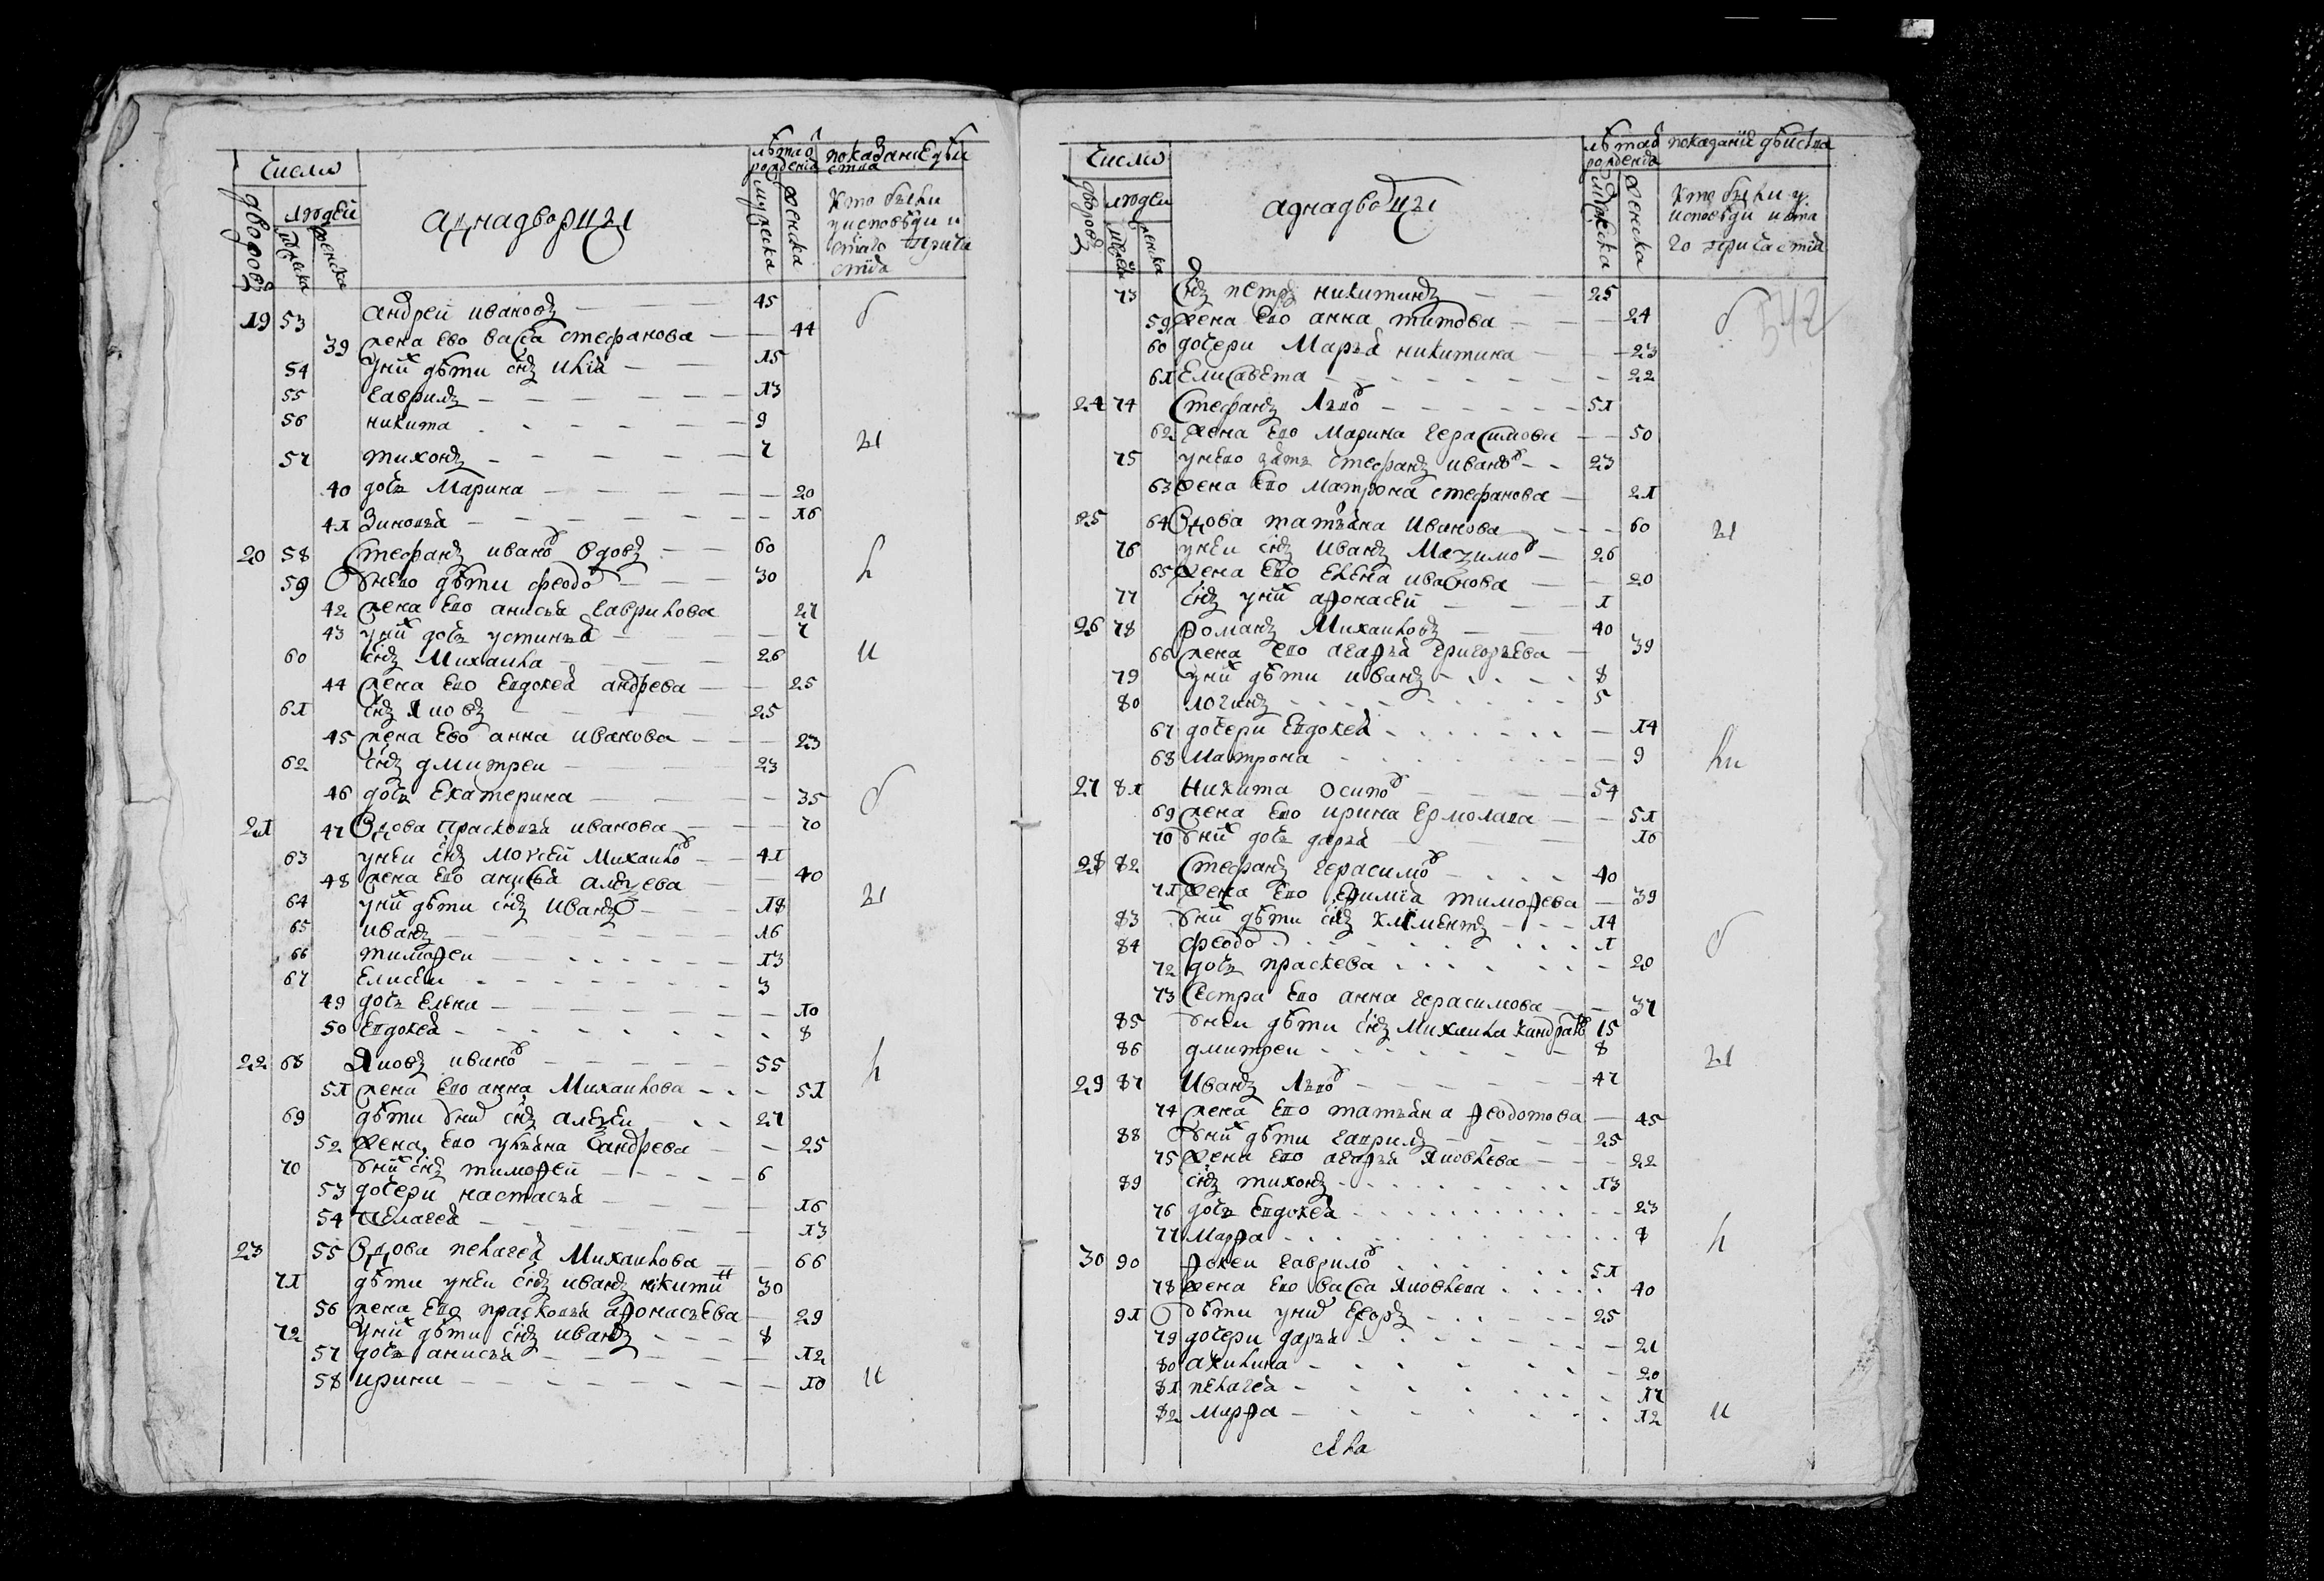 Число
дворовъ
людей
мужеска
женска
аднадворцы
лѣта ѿ рожденїя
мужеска
женска
показанїе дѣйства
кто были у исповѣди и стаго причастїя
19 53 андреи ивановъ 45
39 жена ево васса стефанова 44
54 у них дѣти снъ илїя 15
55 гаврилъ 13
56 никита 9
57 тихонъ 7
40 дочь марина 20
41 зиновья 16
20 58 стефанъ иванов вдовъ 60
59 у нево дѣти феодор 30
42 жена ево анисья гаврилова 27
43 у них дочь устинья 7
60 снъ михаила 26
44 жена ево евдокея андреева 25
61 снъ яковъ 25
45 жена ево анна иванова 23
62 снъ дмитреи 23
46 дочь екатерина 35
21 47 вдова прасковья иванова 70
63 у неи снъ мойсеи михаилов 41
48 жена ево анисья алеѯева 40
64 у них дѣти снъ иванъ 18
65 иванъ 16
66 тимоѳеи 13
67 елисеи 3
49 дочь елена 10
50 евдокея 8
22 68 яковъ иванов 55
51 жена ево анна михаилова 51
69 дѣти у них снъ алеѯеи 27
52 жена ево ульяна андреева 25
70 у них снъ тимоѳеи 6
53 дочери настасья 16
54 пелагея 13
23 55 вдова пелагея михаилова 66
71 дѣти у неи снъ иванъ никитин 30
56 жена ево прасковья аѳонасьева 29
72 у них дѣти снъ иванъ 8
57 дочь анисья 12
58 ирина 10
б
ы
л
и
б
ы
л
и
Число
дворовъ
людеи
мужеска
женска
аднадворцы
лѣта ѿ рожденїя
мужеска
женска
показанїя дѣиства
кто были у исповѣди и стаго причастїя
542
73 снъ петръ никитинъ 25
59 жена ево анна титова 24
60 дочери марья никитина 23
61 елисавета 22
24 74 стефанъ львов 51
62 жена ево марина герасимова 50
75 у нево зять стефанъ иванов 23
63 жена ево матрона стефанова 21
25 64 вдова татьяна иванова 60
76 у неи снъ иванъ маѯимов 26
65 жена ево елена иванова 20
77 снъ у них аѳонасеи 1
26 78 романъ михаиловъ 40
66 жена ево агаѳья григорьева 39
79 у них дѣти иванъ 8
80 логинъ 5
67 дочери евдокея 14
68 матрона 9
27 81 никита осипов 54
69 жена ево ирина ермолава 51
70 у них дочь дарья 16
28 82 стефанъ герасимов 40
71 жена ево еѳимїя тимоѳева 39
83 у них дѣти снъ климентъ 14
84 феодор 1
72 дочь праскева 20
73 сестра ево анна герасимова 37
85 у неи дѣти снъ михаила кандратов 15
86 дмитреи 8
29 87 иванъ львов 47
74 жена ево татьяна ѳеодотова 45
88 у них дѣти гаврилъ 25
75 жена ево агаѳья яковлева 22
89 снъ тихонъ 13
76 дочь евдокея 23
77 марѳа 8
30 90 ѳокеи гаврилов 51
78 жена ево васса яковлева 40
91 дѣти у них егоръ 25
79 дочери дарья 21
80 акилина 20
81 пелагея 17
82 марѳа 12
б
ы
ли
б
ы
л
и